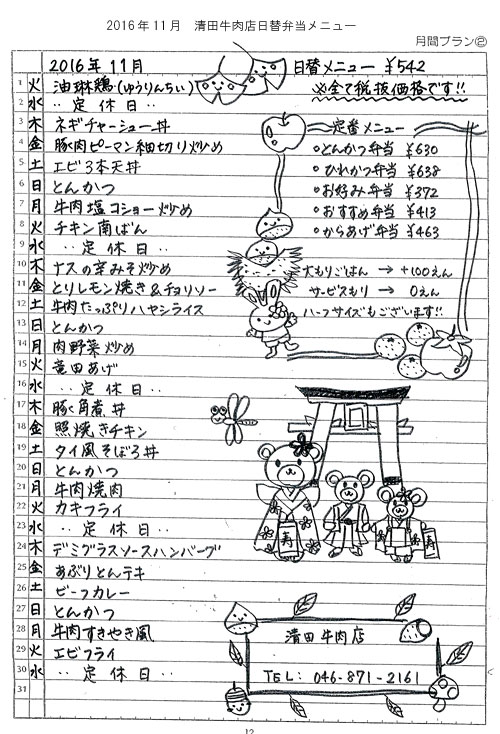 2016年11月　清田牛肉店日替弁当メニュー
月間プラン②
2016年 11月
日替メニュー ¥542
※全て税抜価格です!!
1 火 油琳鶏(ゆうりんちぃ)
2 水 ‥定休日‥
3 木 ネギチャーシュー丼
4 金 豚肉ピーマン細切り炒め
5 土 エビ3本天丼
6 日 とんかつ
7 月 牛肉塩コショー炒め
8 火 チキン南ばん
9 水 ‥定休日‥
10 木 ナスの辛みそ炒め
11 金 とりレモン焼き&チョリソー
12 土 牛肉たっぷりハヤシライス
13 日 とんかつ
14 月 肉野菜炒め
15 火 竜田あげ
16 水 ‥定休日‥
17 木 豚角煮丼
18 金 照焼きチキン
19 土 タイ風そぼろ丼
20 日 とんかつ
21 月 牛肉焼肉
22 火 カキフライ
23 水 ‥定休日‥
24 木 デミグラスソースハンバーグ
25 金 あぶりとんテキ
26 土 ビーフカレー
27 日 とんかつ
28 月 牛肉すきやき風
29 火 エビフライ
30 水 ‥定休日‥
31
定番メニュー
○とんかつ弁当 ¥630
○ひれかつ弁当 ¥638
○お好み弁当 ¥372
○おすすめ弁当 ¥413
○からあげ弁当 ¥463
大もりごはん → +100えん
サービスもり → 0えん
ハーフサイズもございます!!
寿
寿
清田牛肉店
TEL: 046-871-2161
12